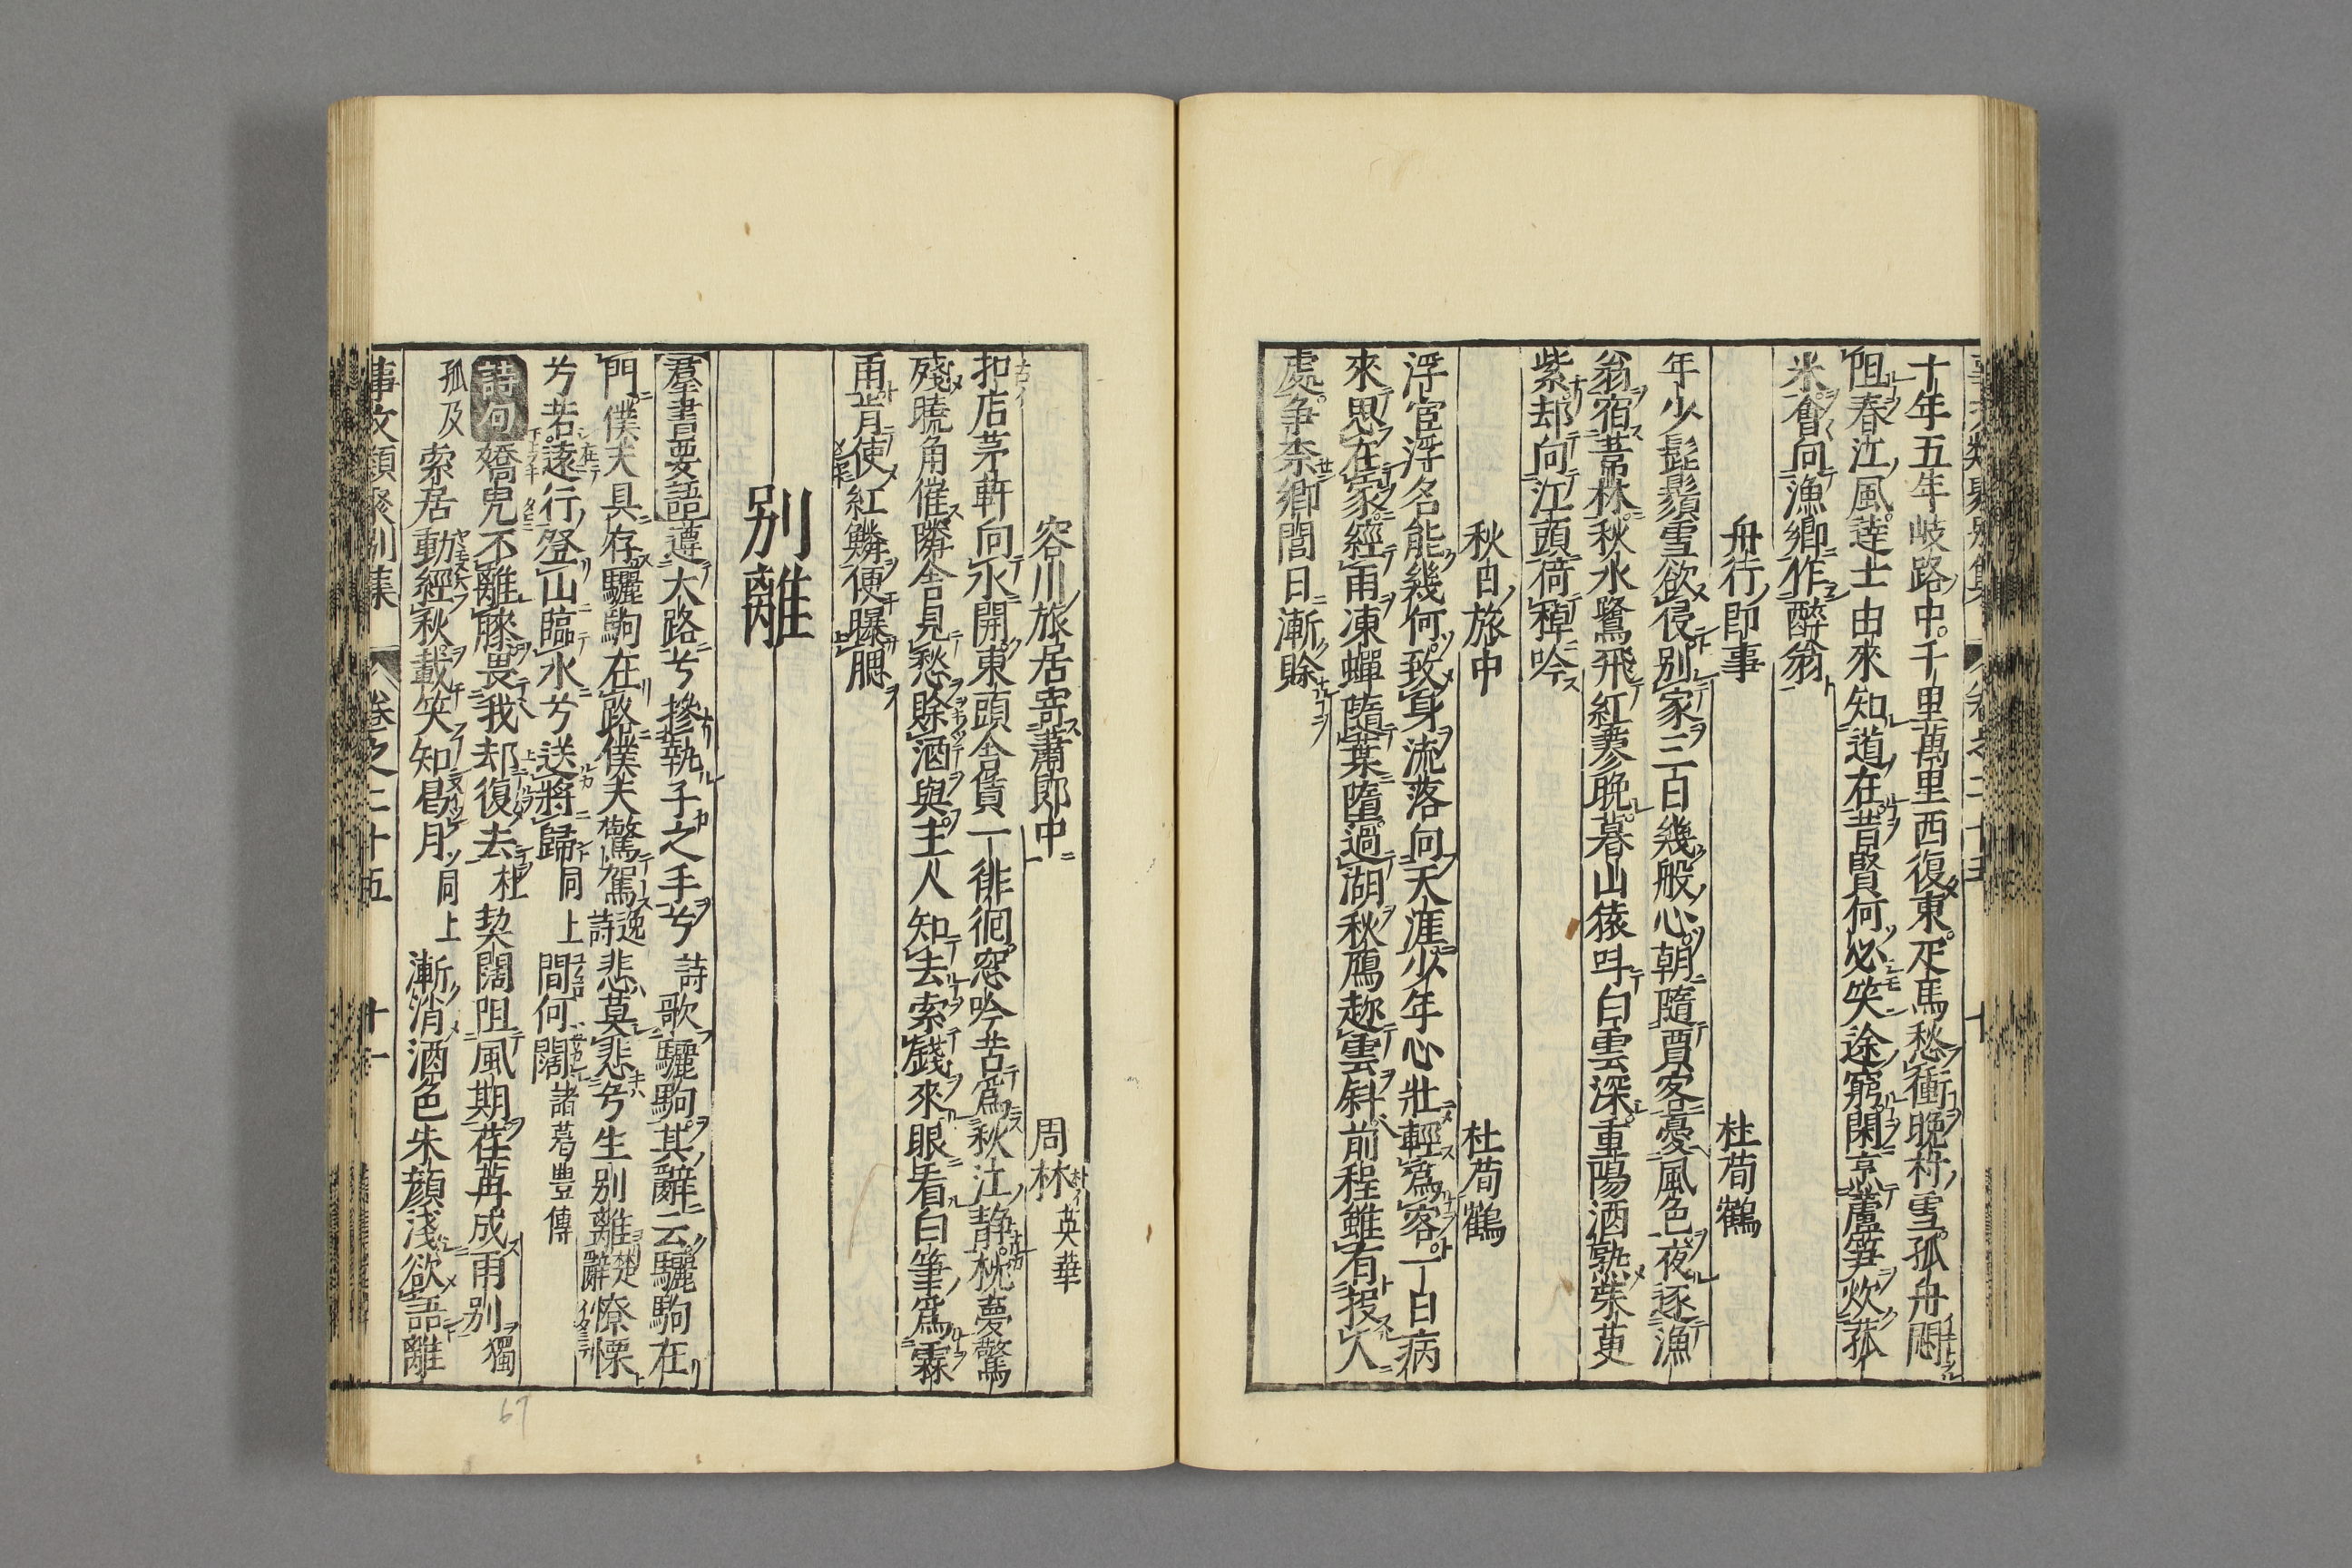 十年五年岐路中千里萬里西復東疋馬愁衝晩村雪孤舟悶
阻春江風達士由來知道在昔賢何必哭途窮閑烹蘆笋炊菰
米會向漁鄉作醉翁
舟行即事 杜荀鶴
年少髭鬚雪欲侵別家三百幾般心朝隨賈客憂風色夜逐漁
翁宿葦林秋水鷺飛紅蓼晩暮山猿呌白雲深重陽酒熟茱萸
紫却向江頭倚棹吟
秋日旅中 杜荀鶴
浮宦浮名能幾何致身流落向天涯少年心壯輕爲客一日病
來思在家經雨凍蟬隨葉墮過湖秋鴈趂雲斜前程雖有投人
處争柰鄉閭日漸賒
容川旅居寄蕭郎中 周林英華
扣店茅軒向水開東頭舍賃一徘徊窓吟苦爲秋江靜枕夢驚
殘曉角催隣舍見愁賒酒與主人知去索錢來眼看白筆爲霖
雨肯使紅鱗便曝腮
別離
羣書要語遵大路兮摻執子之手兮詩歌驪駒其辭云驪駒在
門僕夫具存驪駒在路僕夫驚駕逸詩悲莫悲兮生別離楚辭憭慄
兮若遠行登山臨水兮送將歸同上間何闊諸葛豐傳
詩句嬌兒不離膝畏我却復去杜契闊阻風期荏苒成雨別獨
孤及索居動經秋載笑知曷月同上漸消酒色朱顔淺欲語離
事文類聚別集 卷之二十五 十一